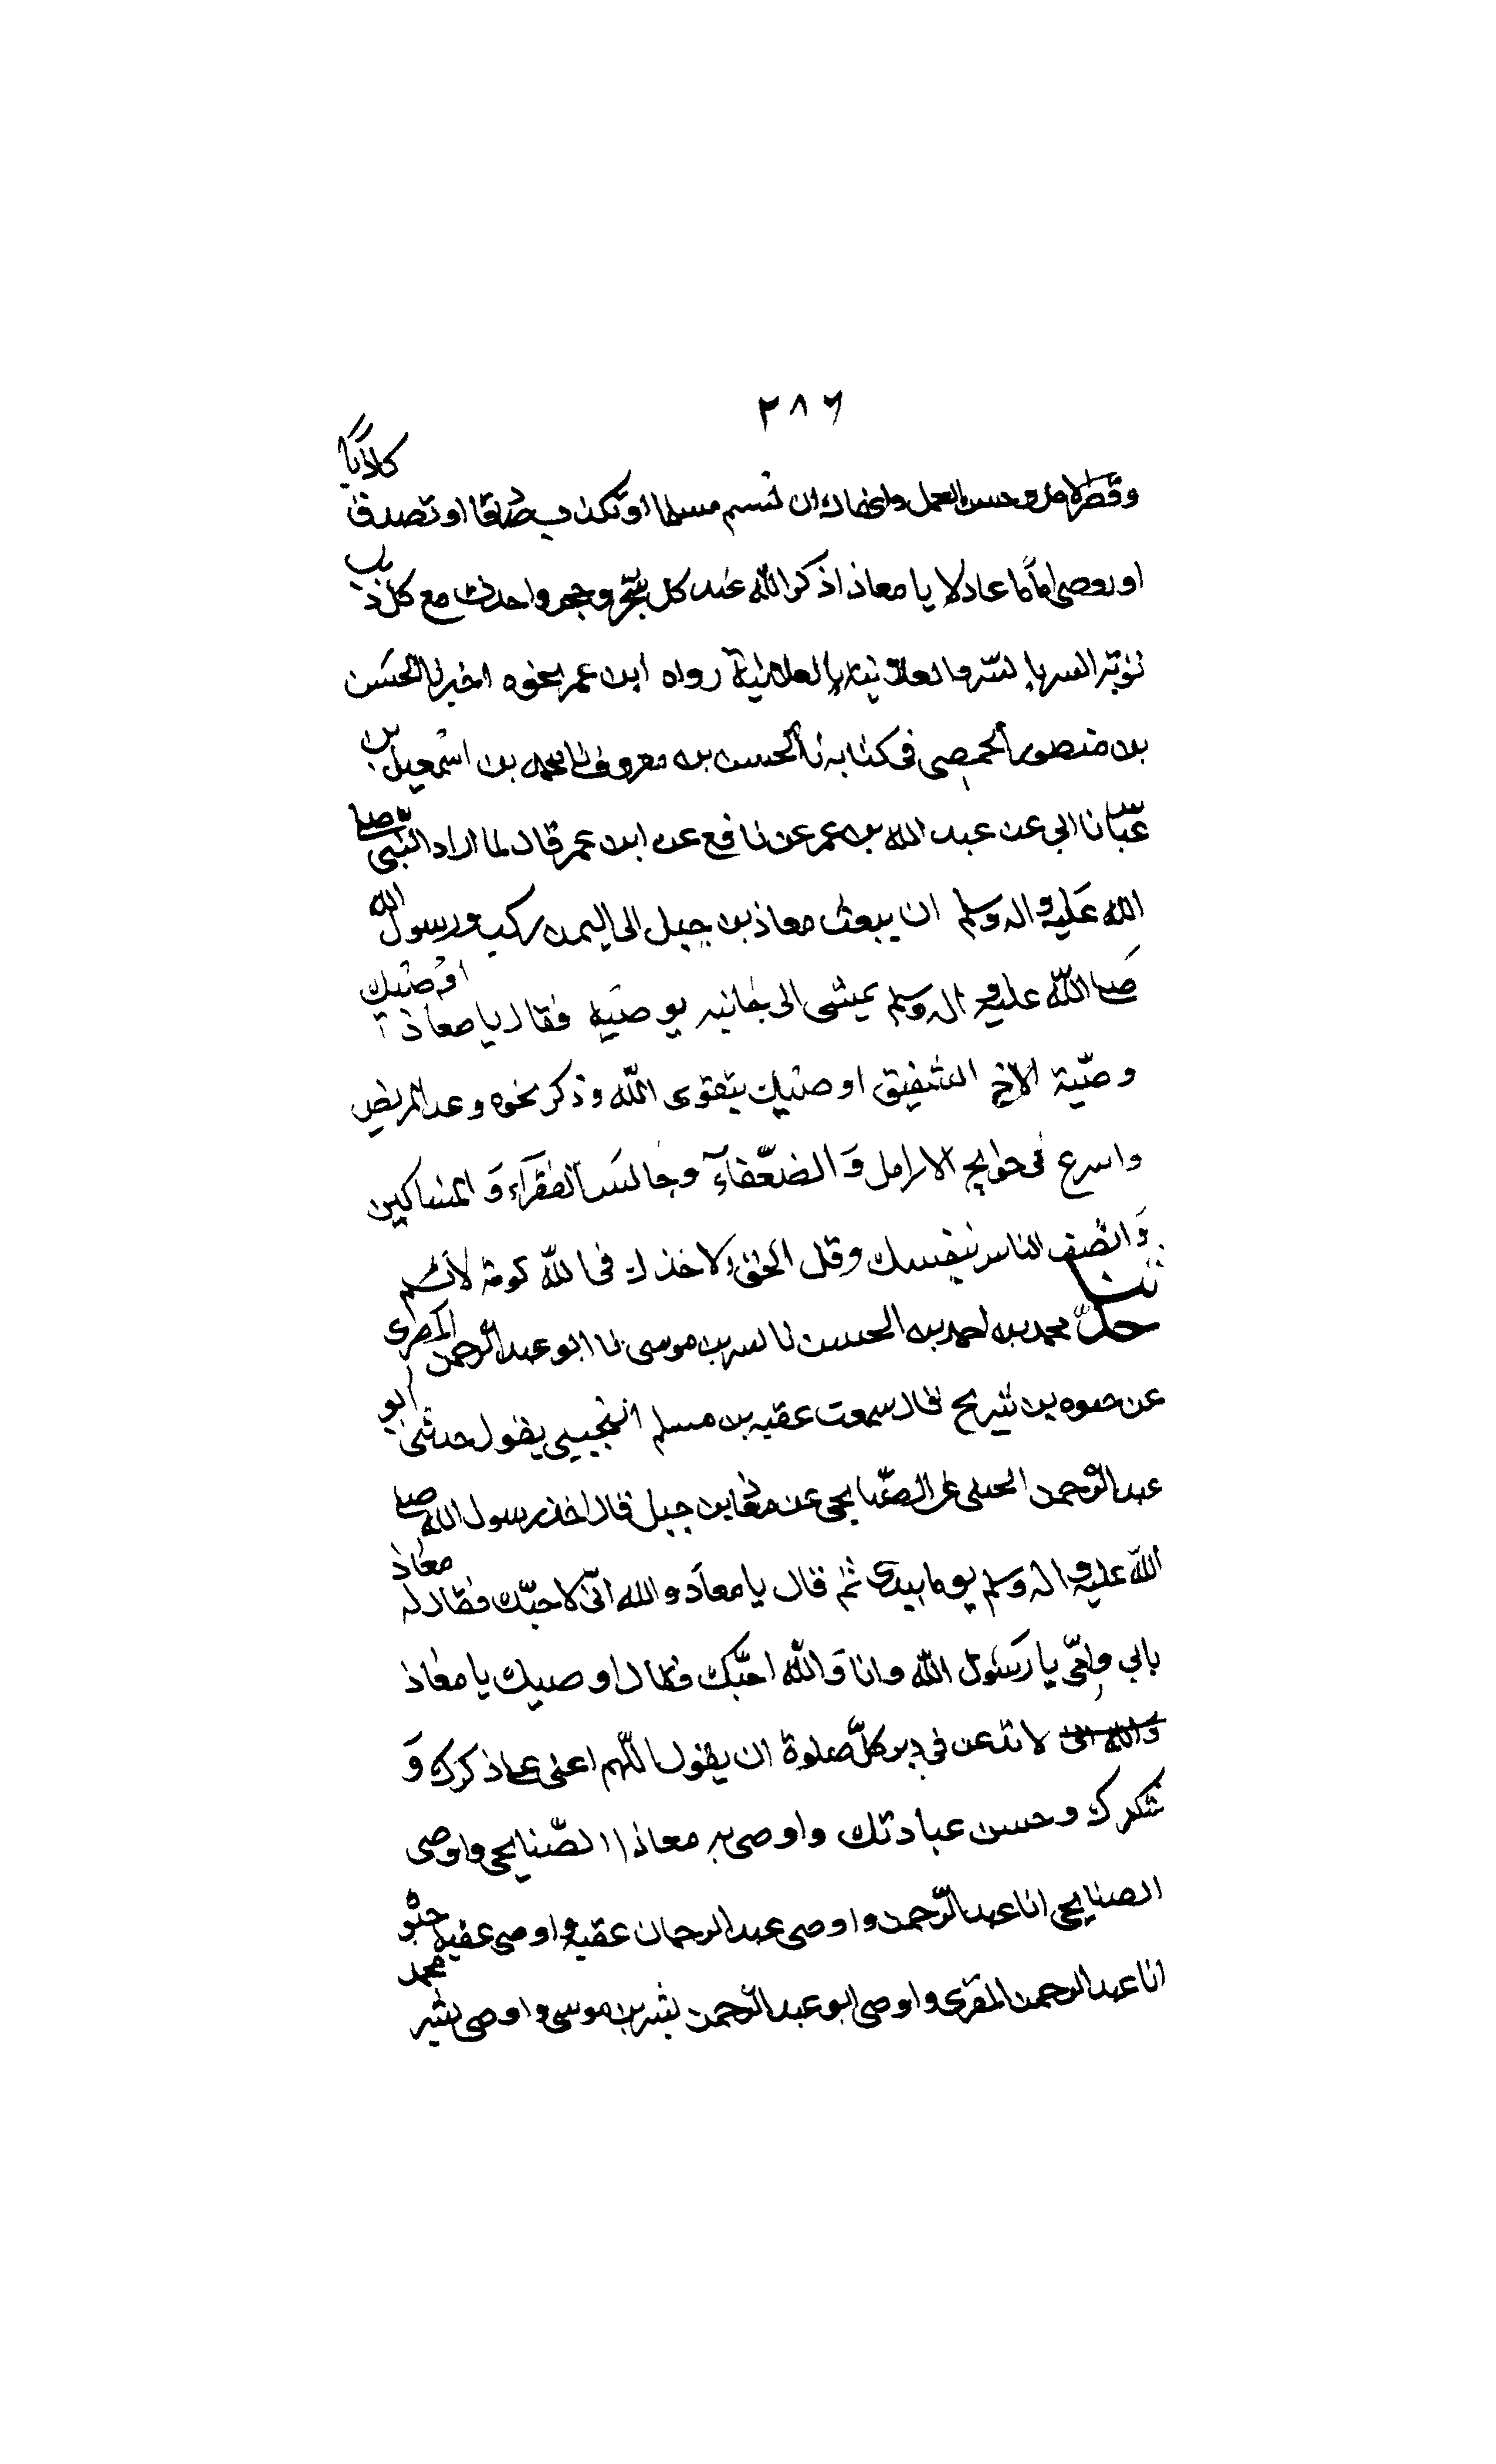 ٢٨٦
وقصر الامل وحسن العمل وانهاك ان تشتم مسلما او تكذب صادقا او تصدق كاذبا
او تعصى اماما عادلا يا معاذ اذكر الله عند كل شجر وحجر واحدث مع كل ذنب
توبة السر بالسر والعلانية بالعلانية رواه ابن عمر نحوه اخبرنا الحسن
بن منصور الحمصى فى كتابه نا الحسن بن معروف نا محمد بن اسمعيل بن
عياش نا ابى عن عبد الله بن عمر عن نافع عن ابن عمر قال لما اراد النبى صلى
الله عليه واله وسلم ان يبعث معاذ بن جبل الى اليمن ركب ورسول الله
صلى الله عليه واله وسلم يمشى الى جانبه يوصيه فقال يا معاذ اوصيك
وصية الاخ الشفيق اوصيك بتقوى الله وذكر نحوه وعد المريض
واسرع فى حوايج الارامل وَالضعّفآء وجالس الفقرآء وَالمساكين
وَانصف الناس بنفسك وقل الحق ولا خذك فى الله لومة لائم
حدّثنا محمد بن احمد بن الحسن نا بشر بن موسى نا ابو عبد الرّحمن المقرى
عن حيوه بن شريح قال سمعت عقبه بن مسلم التجيبى يقول حدثنى ابو
عبد الرّحمن الحبلى عن الصّنابحى عن معاذ بن جبل قال اخذ رسول الله صلى
الله عليه واله وسلم يوما بيدى ثم قال يا معاذ والله انّى لاحبّك فقال له معاذ
بابى وامّى يا رَسُول الله وانا وَالله احبّك فقال اوصيك يا معاذ
وَالله انى لا تدعن فى دبر كلّ صلوة ان يقول اللّهم اعنى على ذكرك وَ
شكرك وحسن عبادتك واوصى به معاذ الصّنابحى واوصى
الصنابحى انا عبد الرّحمن واوصى عبد الرحمان عقبه واوصى عقبه حيوه
انا عبد الرحمن المقرى واوصى ابو عبد الرّحمن بشر بن موسى واوصى بشر محمد